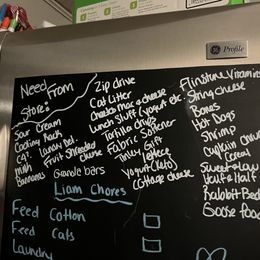 GE Profile
Need From
Store:
Sour Cream
Cooking Rack
Cat Laundry Det.
Milk
Bananas
Fruit Shredded
Cheese
Granola bars
Zip drive
Cat Litter
Cheeto mac & cheese
Lunch Stuff (yogurt etc.)
Tortilla chips
Fabric Softener
Tinley Gift
Lettuce
Yogurt (Keto)
Cottage cheese
Flinstone Vitamins
String cheese
Bones
Hot Dogs
Shrimp
Captain Crunch
Cereal
Sweet + Low
Half & Half
Rabbit Bed
Goose Food
Liam Chores
Feed Cotton
Feed Cats
Laundry